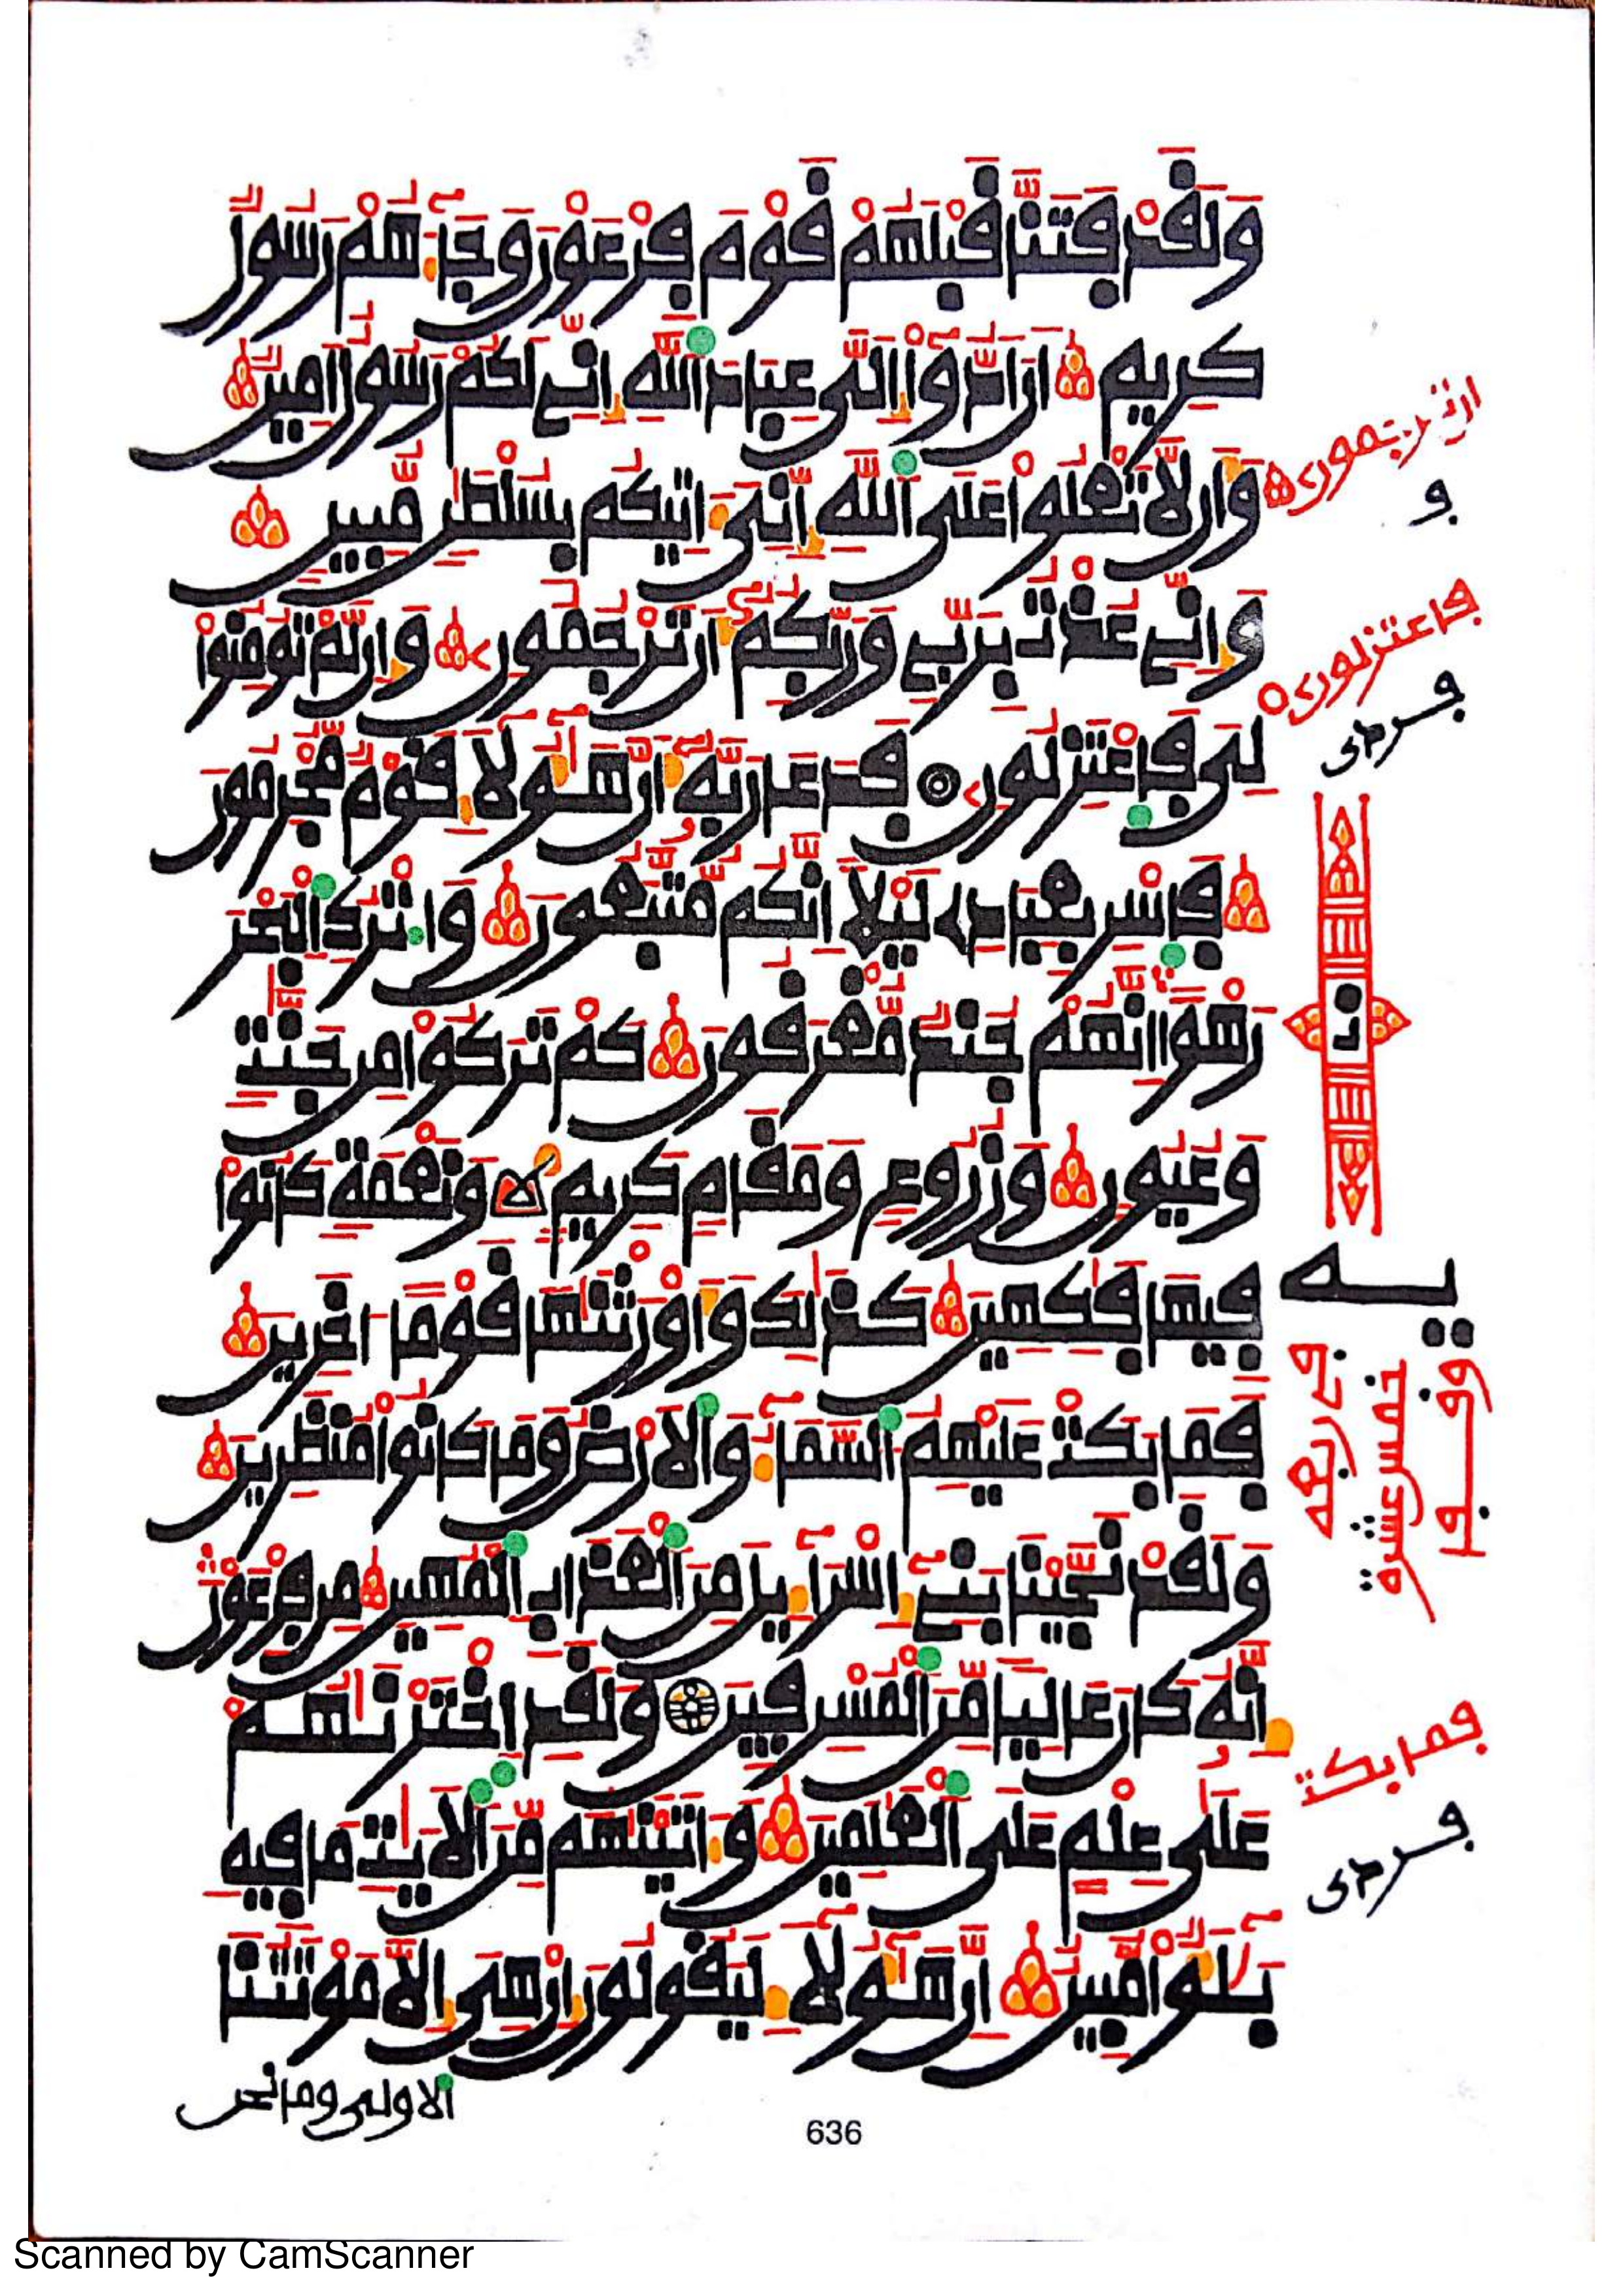 وَلَقَدْ فَتَنَّا قَبْلَهُمْ قَوْمَ فِرْعَوْنَ وَجَآءَهُمْ رَسُولٌ
كَرِيمٌ أَنْ أَدُّوٓاْ إِلَىَّ عِبَادَ ٱللَّهِ إِنِّے لَكُمْ رَسُولٌ أَمِينٌ
وَأَن لَّا تَعْلُواْ عَلَى ٱللَّهِ إِنِّىَ ءَاتِيكُم بِسُلْطَٰنٍ مُّبِينٍ
وَإِنِّے عُذْتُ بِرَبِّے وَرَبِّكُمُۥٓ أَن تَرْجُمُونِۦ وَإِن لَّمْ تُومِنُواْ
لِىَ فَاعْتَزِلُونِۦ فَدَعَا رَبَّهُۥٓ أَنَّ هَٰٓؤُلَآءِ قَوْمٌ مُّجْرِمُونَ
فَاسْرِ بِعِبَادِے لَيْلًا إِنَّكُم مُّتَّبَعُونَ وَاتْرُكِ ٱلْبَحْرَ
رَهْوًا إِنَّهُمْ جُندٌ مُّغْرَقُونَ كَمْ تَرَكُواْ مِن جَنَّٰتٍ
وَعُيُونٍ وَزُرُوعٍ وَمَقَامٍ كَرِيمٍ وَنَعْمَةٍ كَانُواْ
فِيهَا فَٰكِهِينَ كَذَٰلِكَ وَأَوْرَثْنَٰهَا قَوْمًا ءَاخَرِينَ
فَمَا بَكَتْ عَلَيْهِمُ ٱلسَّمَآءُ وَٱلْأَرْضُ وَمَا كَانُواْ مُنظَرِينَ
وَلَقَدْ نَجَّيْنَا بَنِےٓ إِسْرَآءِيلَ مِنَ ٱلْعَذَابِ ٱلْمُهِينِ مِن فِرْعَوْنَ
إِنَّهُۥ كَانَ عَالِيًا مِّنَ ٱلْمُسْرِفِينَ وَلَقَدِ اخْتَرْنَٰهُمْ
عَلَىٰ عِلْمٍ عَلَى ٱلْعَٰلَمِينَ وَءَاتَيْنَٰهُم مِّنَ ٱلْأَيَٰتِ مَا فِيهِ
بَلَٰٓؤٌاْ مُّبِينٌ إِنَّ هَٰٓؤُلَآءِ لَيَقُولُونَ إِنْ هِىَ إِلَّا مَوْتَتُنَا
ٱلاولى وما نحن
ان ترجمون
و
فاعتزلون
فردى
يه
في ربعه
خمس عشرة
فما بكت
فردى
636
Scanned by CamScanner